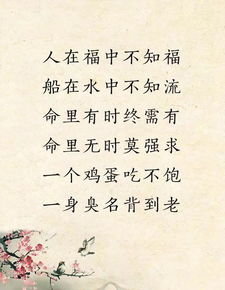 人在福中不知福
船在水中不知流
命里有时终需有
命里无时莫强求
一个鸡蛋吃不饱
一身臭名背到老